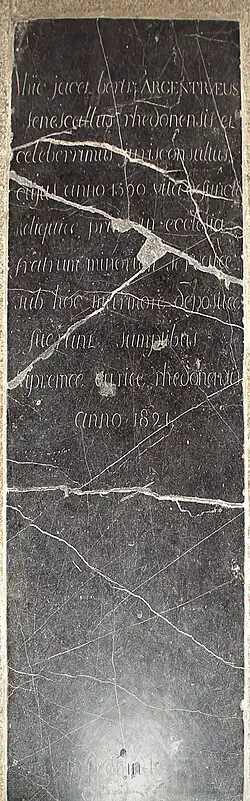 hic jacet bertr. ARGENTRÆUS
senescallus rhedonensis et
celeberrimus jurisconsultus
cujus anno 1590 vita functi
reliquiæ prius in ecclesia
fratrum minorum sepultæ
sub hoc marmore depositæ
fuerunt sumptibus
supremæ curiæ rhedonensis
anno 1821.